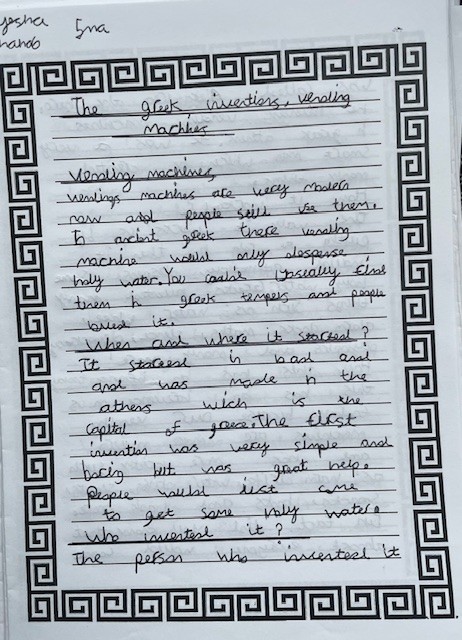 yesha 5ma
The greek inventions, vending
Machines
Vending machines,
vendings machines are very modern
now and people still use them.
In ancint greek there vending
machine would only despense
holy water. You could usually find
them in greek tempels and people
when and where it started?
It started in and
and was made in the
athens wich is the
capital of greece. The first
invention was very simple and
boring but was great help.
people would just come
to get some holy water.
who invented it?
The person who invented it